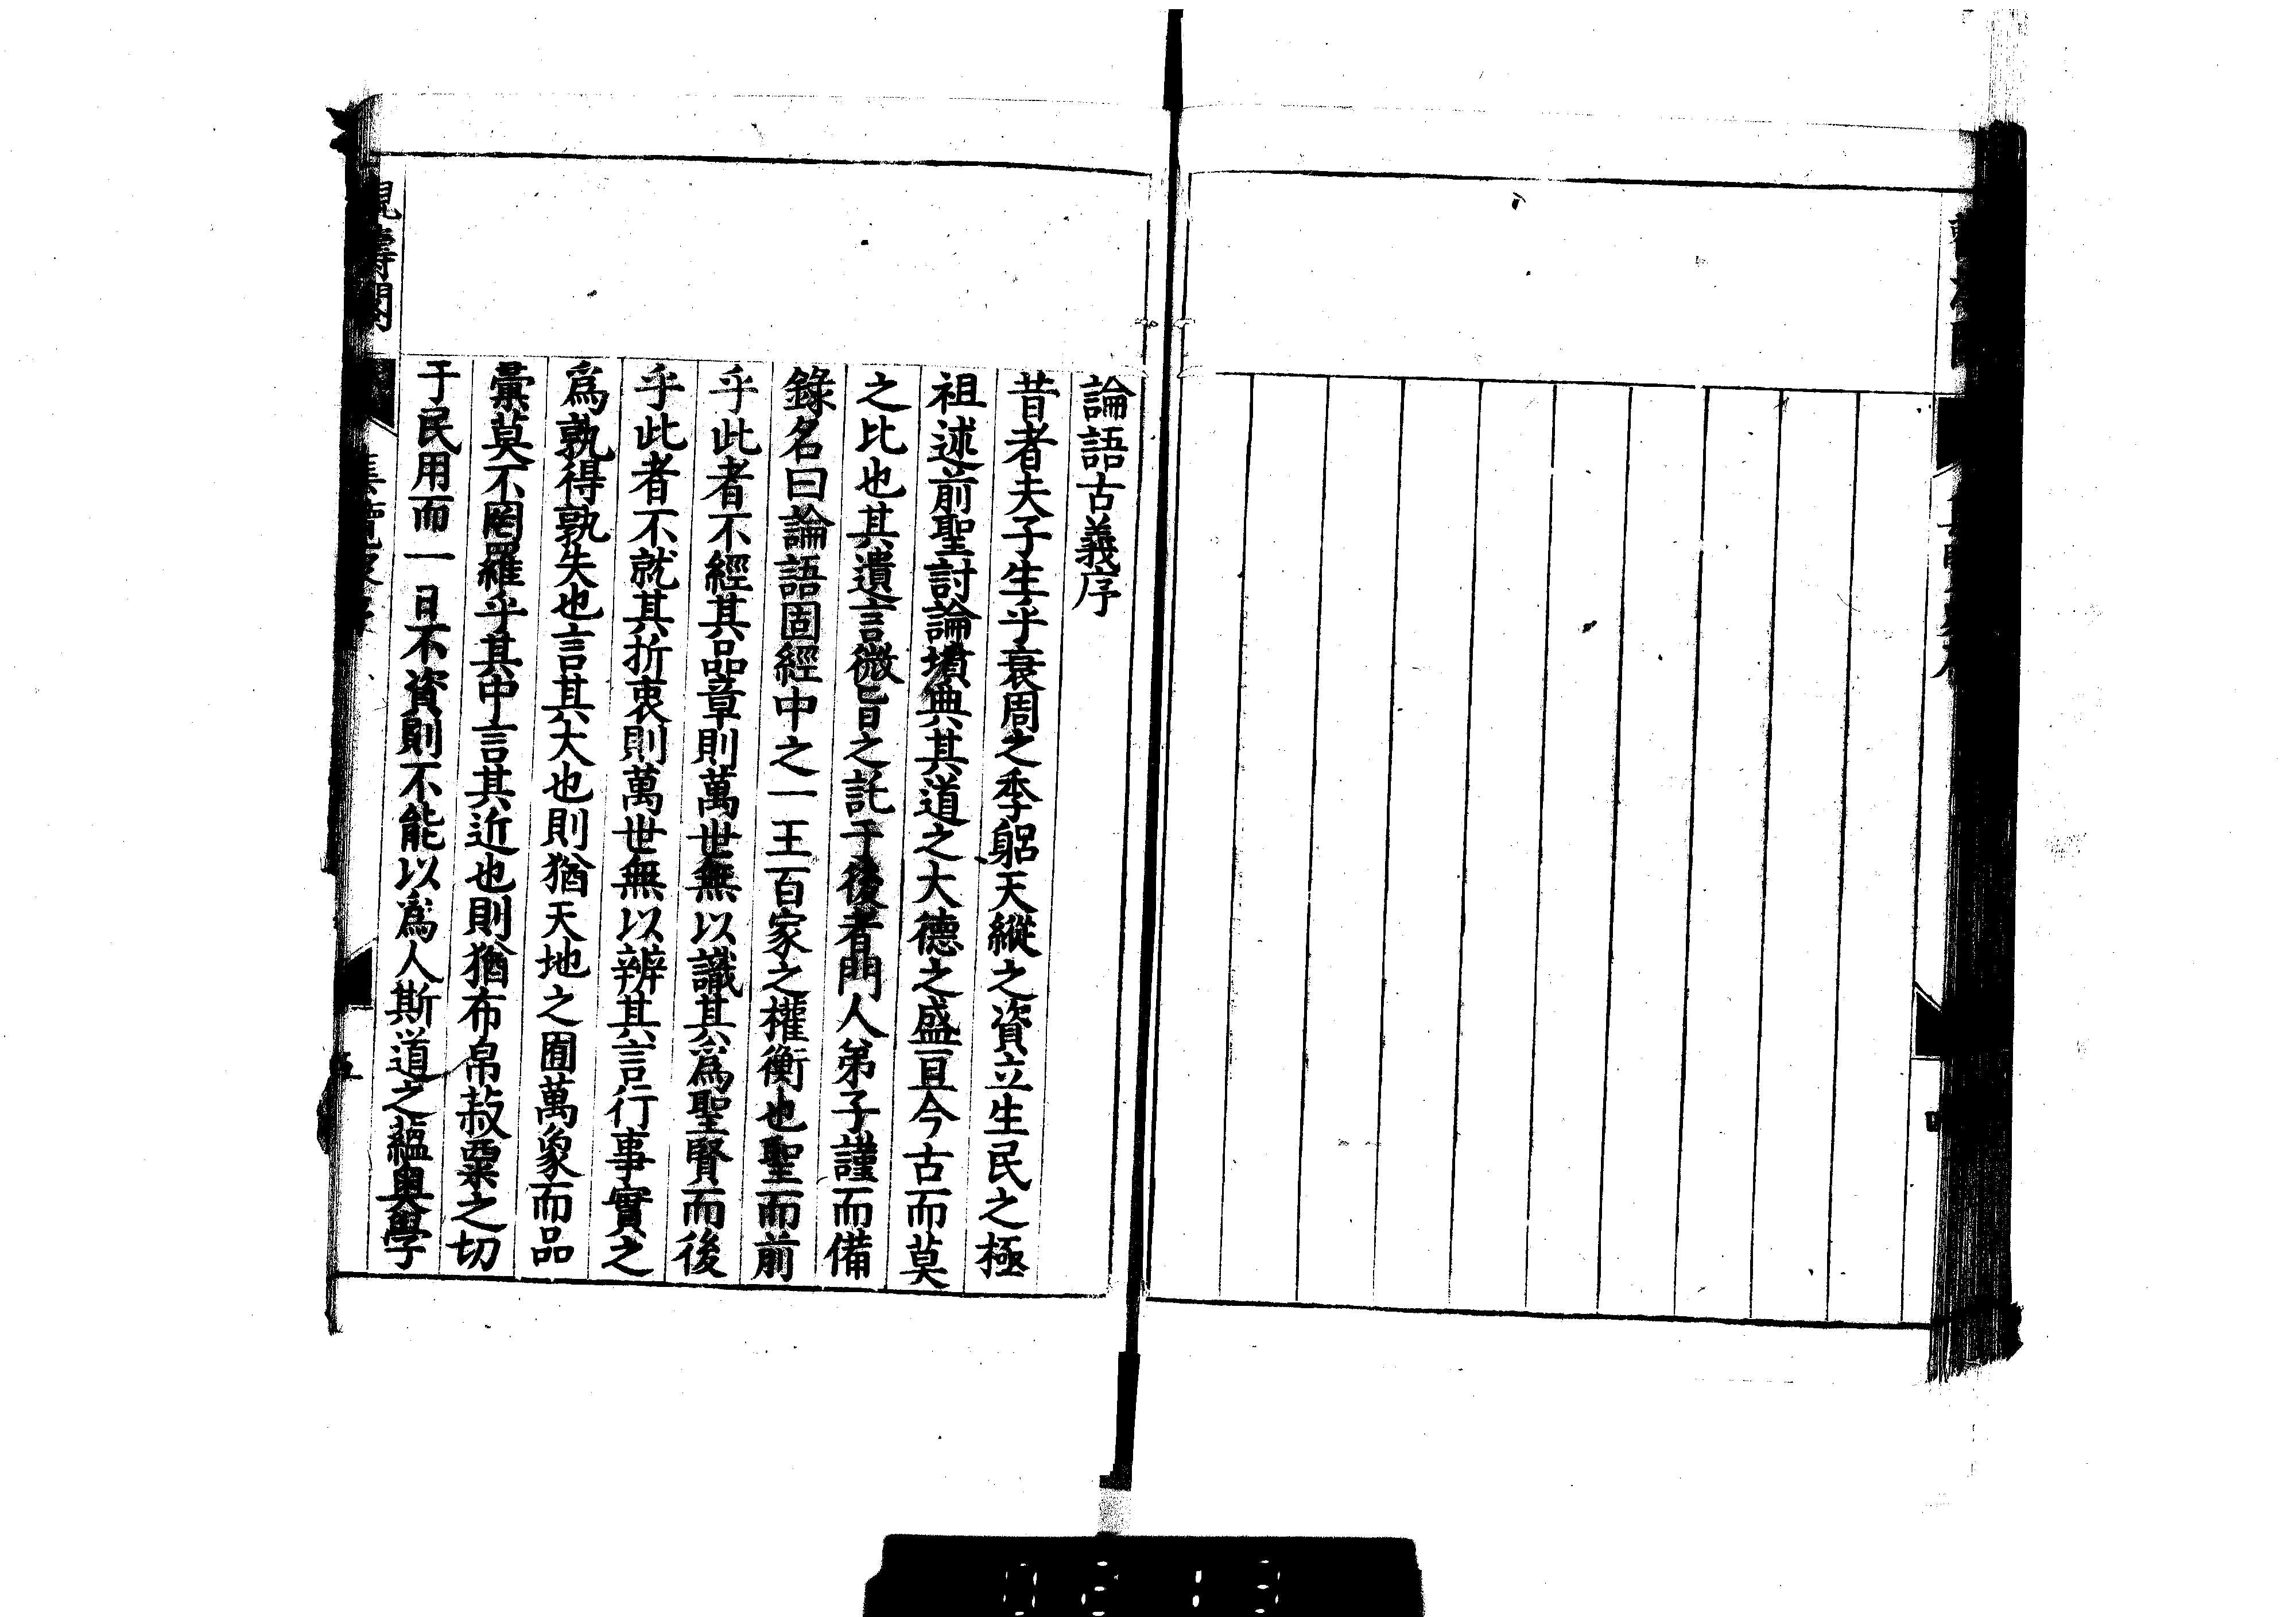 論語古義序
昔者夫子生乎衰周之季躬天縱之資立生民之極
祖述前聖討論墳典其道之大德之盛亘今古而莫
之比也其遺言微旨之託于後者門人弟子謹而備
錄名曰論語固經中之一王百家之權衡也聖而前
乎此者不經其品章則萬世無以識其爲聖賢而後
乎此者不就其折衷則萬世無以辨其言行事實之
爲孰得孰失也言其大也則猶天地之囿萬象而品
彙莫不罔羅乎其中言其近也則猶布帛菽粟之切
于民用而一日不資則不能以爲人斯道之蘊奧學